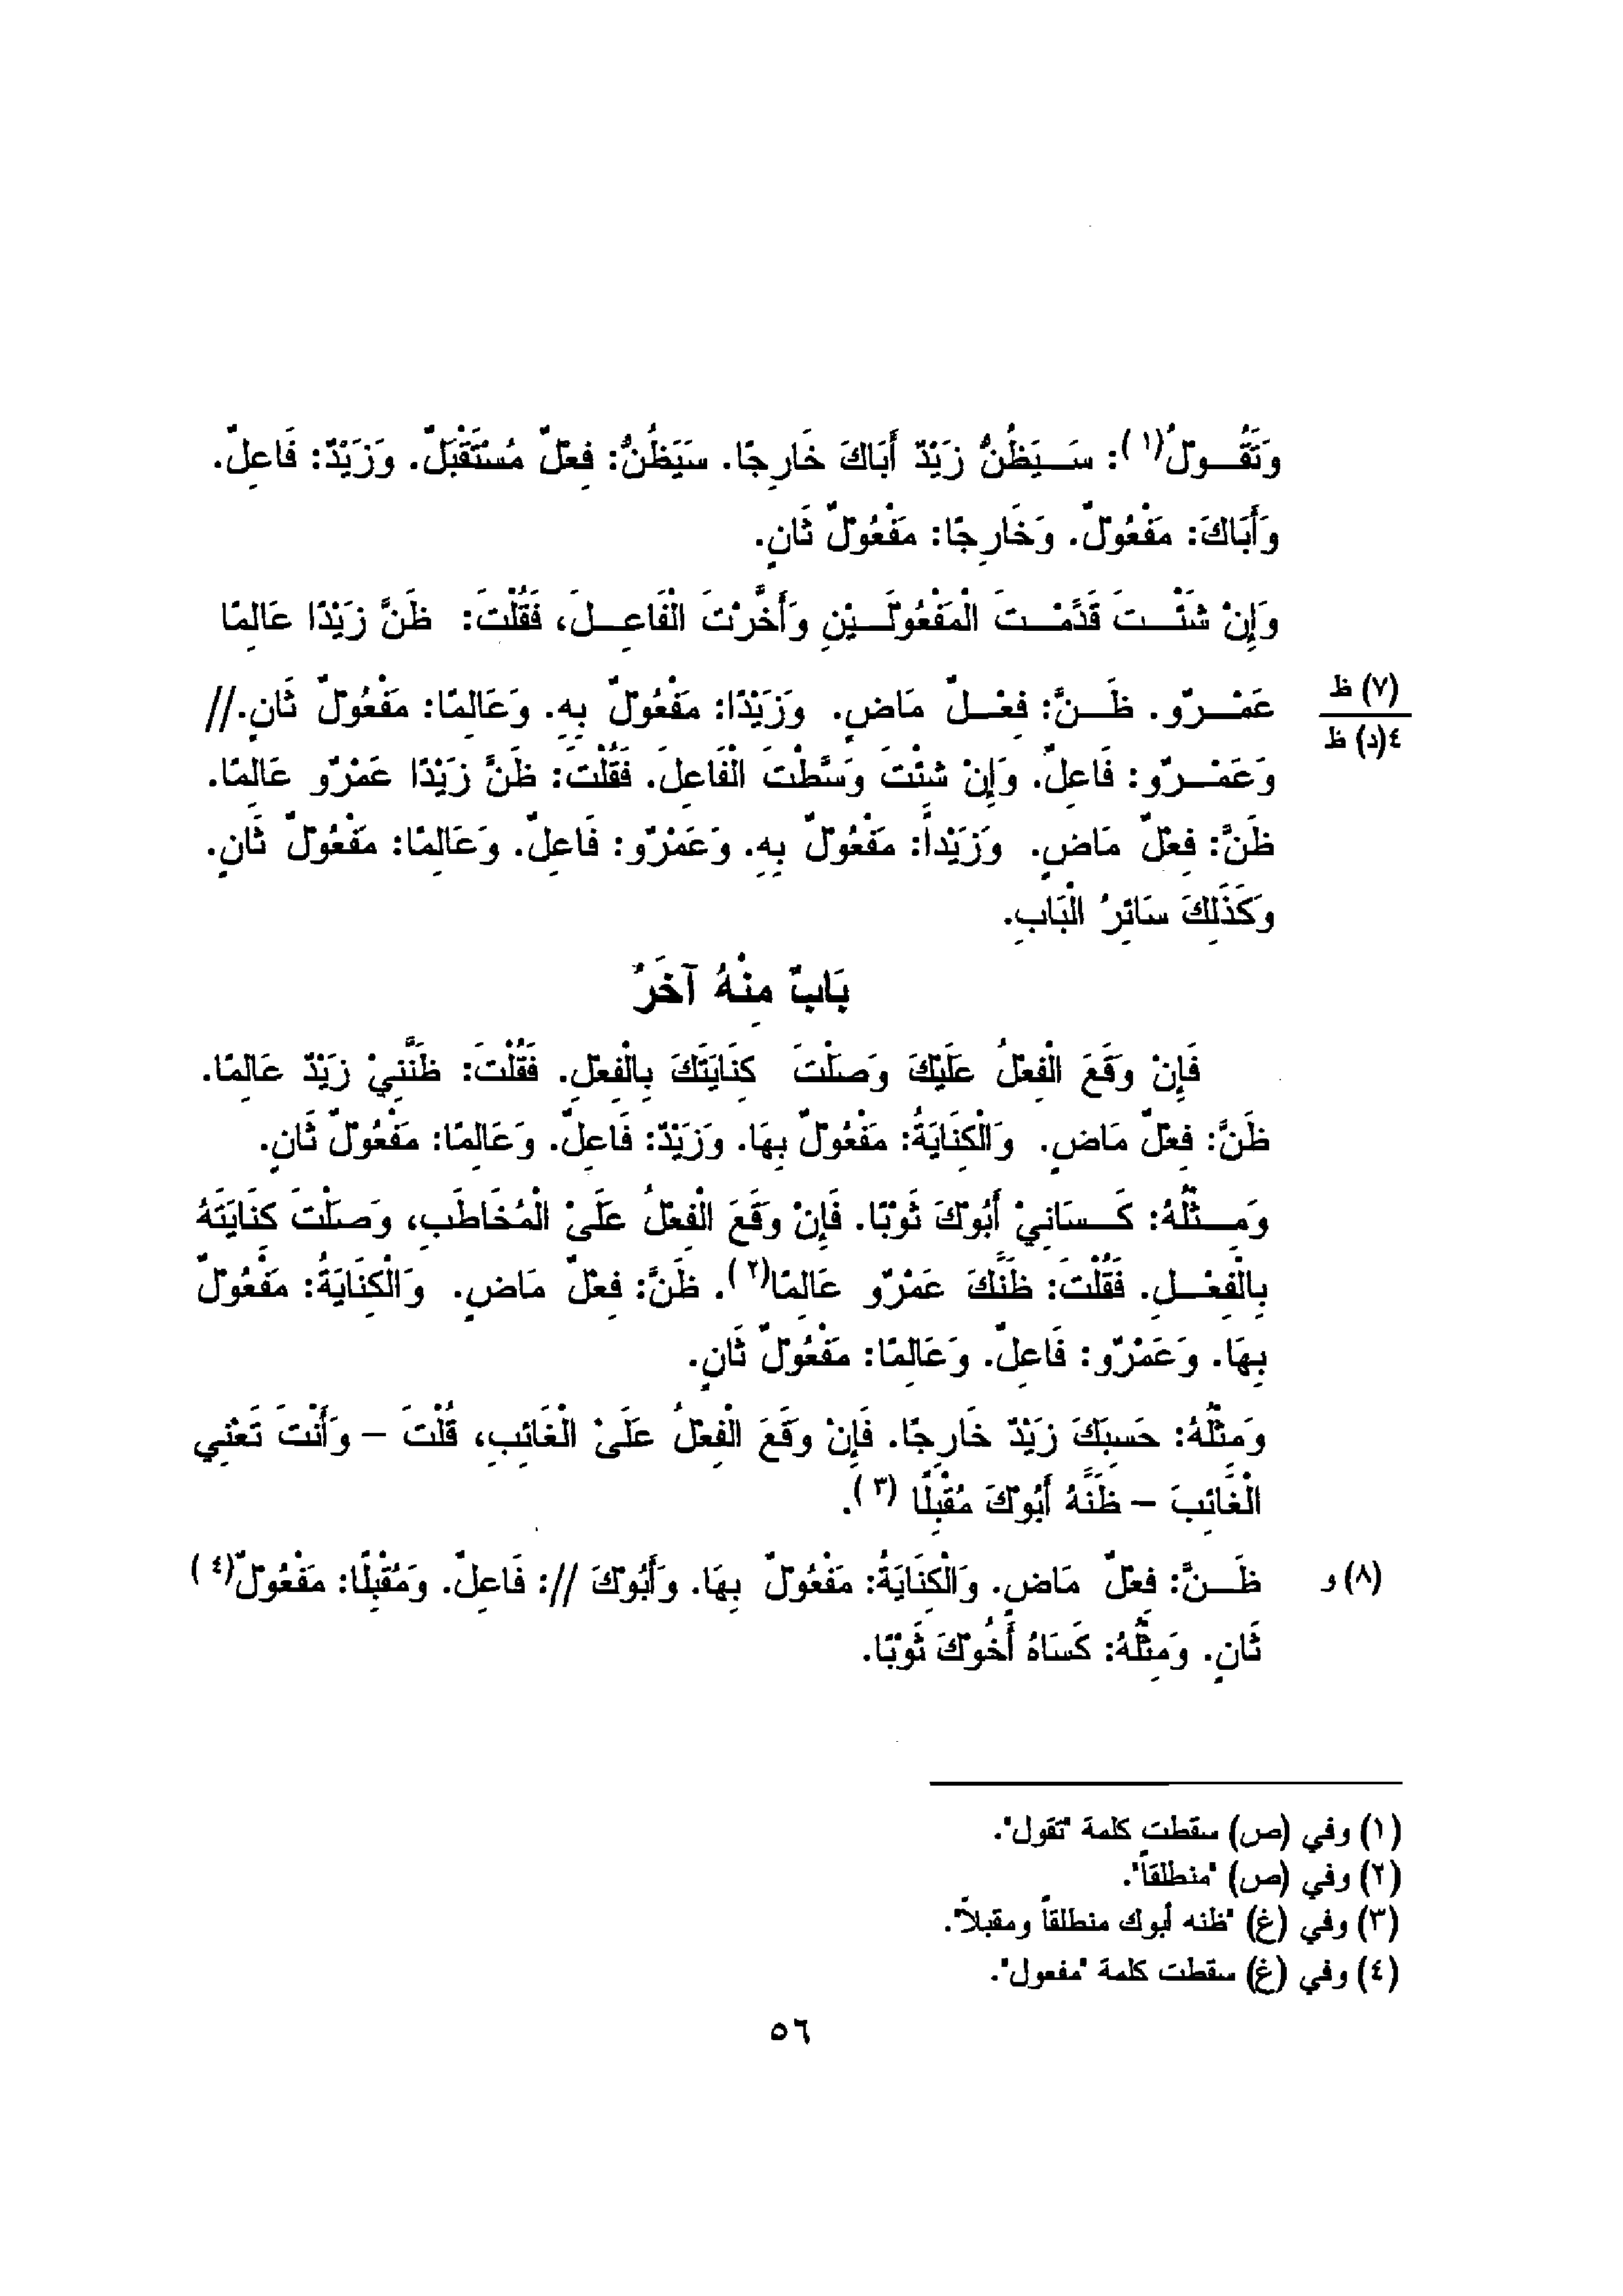 وَتَقُــولُ(١): سَــيَظُنُّ زَيْدٌ أَبَاكَ خَارِجًا. سَيَظُنُّ: فِعْلٌ مُسْتَقْبَلٌ. وَزَيْدٌ: فَاعِلٌ.
وَأَبَاكَ: مَفْعُولٌ. وَخَارِجًا: مَفْعُولٌ ثَانٍ.
وَإِنْ شَئْــتَ قَدَّمْــتَ الْمَفْعُولَــيْنِ وَأَخَّرْتَ الْفَاعِــلَ، فَقُلْتَ: ظَنَّ زَيْدًا عَالِمًا
عَمْــرٌو. ظَــنَّ: فِعْــلٌ مَاضٍ. وَزَيْدًا: مَفْعُولٌ بِهِ. وَعَالِمًا: مَفْعُولٌ ثَانٍ.//
(٧) ظ
٤(د) ظ
وَعَمْــرٌو: فَاعِلٌ. وَإِنْ شئْتَ وَسَّطْتَ الْفَاعِلَ. فَقُلْتَ: ظَنَّ زَيْدًا عَمْرٌو عَالِمًا.
ظَنَّ: فِعْلٌ مَاضٍ. وَزَيْداً: مَفْعُولٌ بِهِ. وَعَمْرٌو: فَاعِلٌ. وَعَالِمًا: مَفْعُولٌ ثَانٍ.
وَكَذَلِكَ سَائِرُ الْبَابِ.
بَابٌ مِنْهُ آخَرُ
فَإِنْ وَقَعَ الْفِعْلُ عَلَيْكَ وَصَلْتَ كِنَايَتَكَ بِالْفِعْلِ. فَقُلْتَ: ظَنَّنِيْ زَيْدٌ عَالِمًا.
ظَنَّ: فِعْلٌ مَاضٍ. وَالْكِنَايَةُ: مَفْعُولٌ بِهَا. وَزَيْدٌ: فَاعِلٌ. وَعَالِمًا: مَفْعُولٌ ثَانٍ.
وَمِــثْلُهُ: كَــسَانِيْ أَبُوْكَ ثَوْبًا. فَإِنْ وَقَعَ الْفِعْلُ عَلَىْ الْمُخَاطَبِ، وَصَلْتَ كِنَايَتَهُ
بِالْفِعْــلِ. فَقُلْتَ: ظَنَّكَ عَمْرٌو عَالِمًا(٢). ظَنَّ: فِعْلٌ مَاضٍ. وَالْكِنَايَةُ: مَفْعُوْلٌ
بِهَا. وَعَمْرٌو: فَاعِلٌ. وَعَالِمًا: مَفْعُوْلٌ ثَانٍ.
وَمِثْلُهُ: حَسِبَكَ زَيْدٌ خَارِجًا. فَإِنْ وَقَعَ الْفِعْلُ عَلَىْ الْغَائِبِ، قُلْتَ – وَأَنْتَ تَعْنِي
الْغَائِبَ – ظَنَّهُ أَبُوْكَ مُقْبِلًا (٣).
ظَــنَّ: فِعْلٌ مَاضٍ. وَالْكِنَايَةُ: مَفْعُولٌ بِهَا. وَأَبُوْكَ //: فَاعِلٌ. وَمُقْبِلًا: مَفْعُولٌ(٤)
(٨) و
ثَانٍ. وَمِثْلُهُ: كَسَاهُ أَخُوْكَ ثَوْبًا.
(١) وفي (ص) سقطت كلمة "تقول".
(٢) وفي (ص) "منطلقاً".
(٣) وفي (غ) "ظنه أبوك منطلقاً ومقبلاً".
(٤) وفي (غ) سقطت كلمة "مفعول".
٥٦